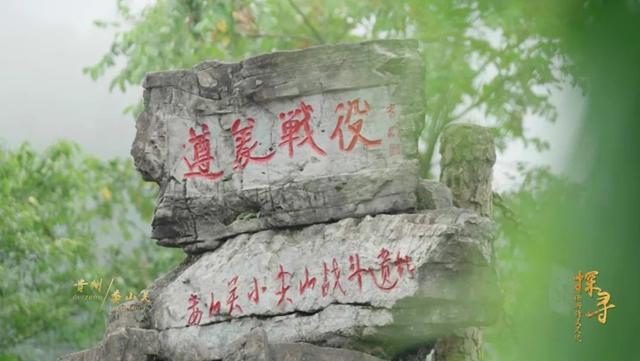 遵义战役
娄山关小尖山战斗遗址
贵州
娄山关
探寻